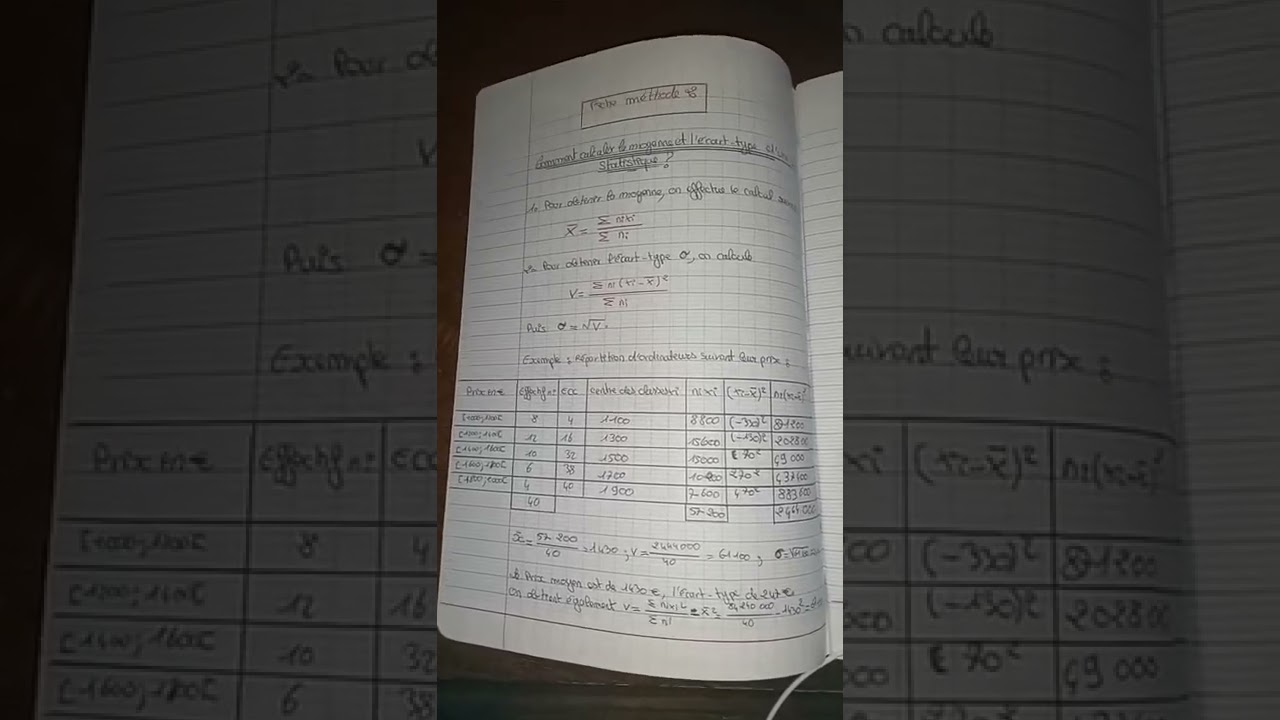 Fiche méthode 8
Comment calculer la moyenne et l'écart-type d'une
Statistique ?
1. Pour obtenir la moyenne, on effectue le calcul
x̄ = Σ nixi / Σ ni
2. Pour obtenir l'écart-type σ, on calcule
V = Σ ni(xi-x̄)² / Σ ni
Puis σ = √V.
Exemple : Répartition d'ordinateurs suivant leur prix :
Prix en € effectif ni ECC centre des classes xi ni xi (xi-x̄)² ni(xi-x̄)²
[1000;1200[ 8 4 1100 8800 (-330)² 871200
[1200;1400[ 12 16 1300 15600 (-130)² 202800
[1400;1600[ 10 32 1500 15000 70² 49 000
[1600;1800[ 6 38 1700 10200 270² 437400
[1800;2000[ 4 40 1900 7600 470² 883600
40 57 200 2444 000
x̄ = 57 200 / 40 = 1430 ; V = 2444000 / 40 = 61100 ; σ =
Le Prix moyen est de 1430 €, l'écart-type de 247 €
On obtient également V = Σ nixi² / Σ ni - x̄² = 84 240 000 / 40 - 1430² =